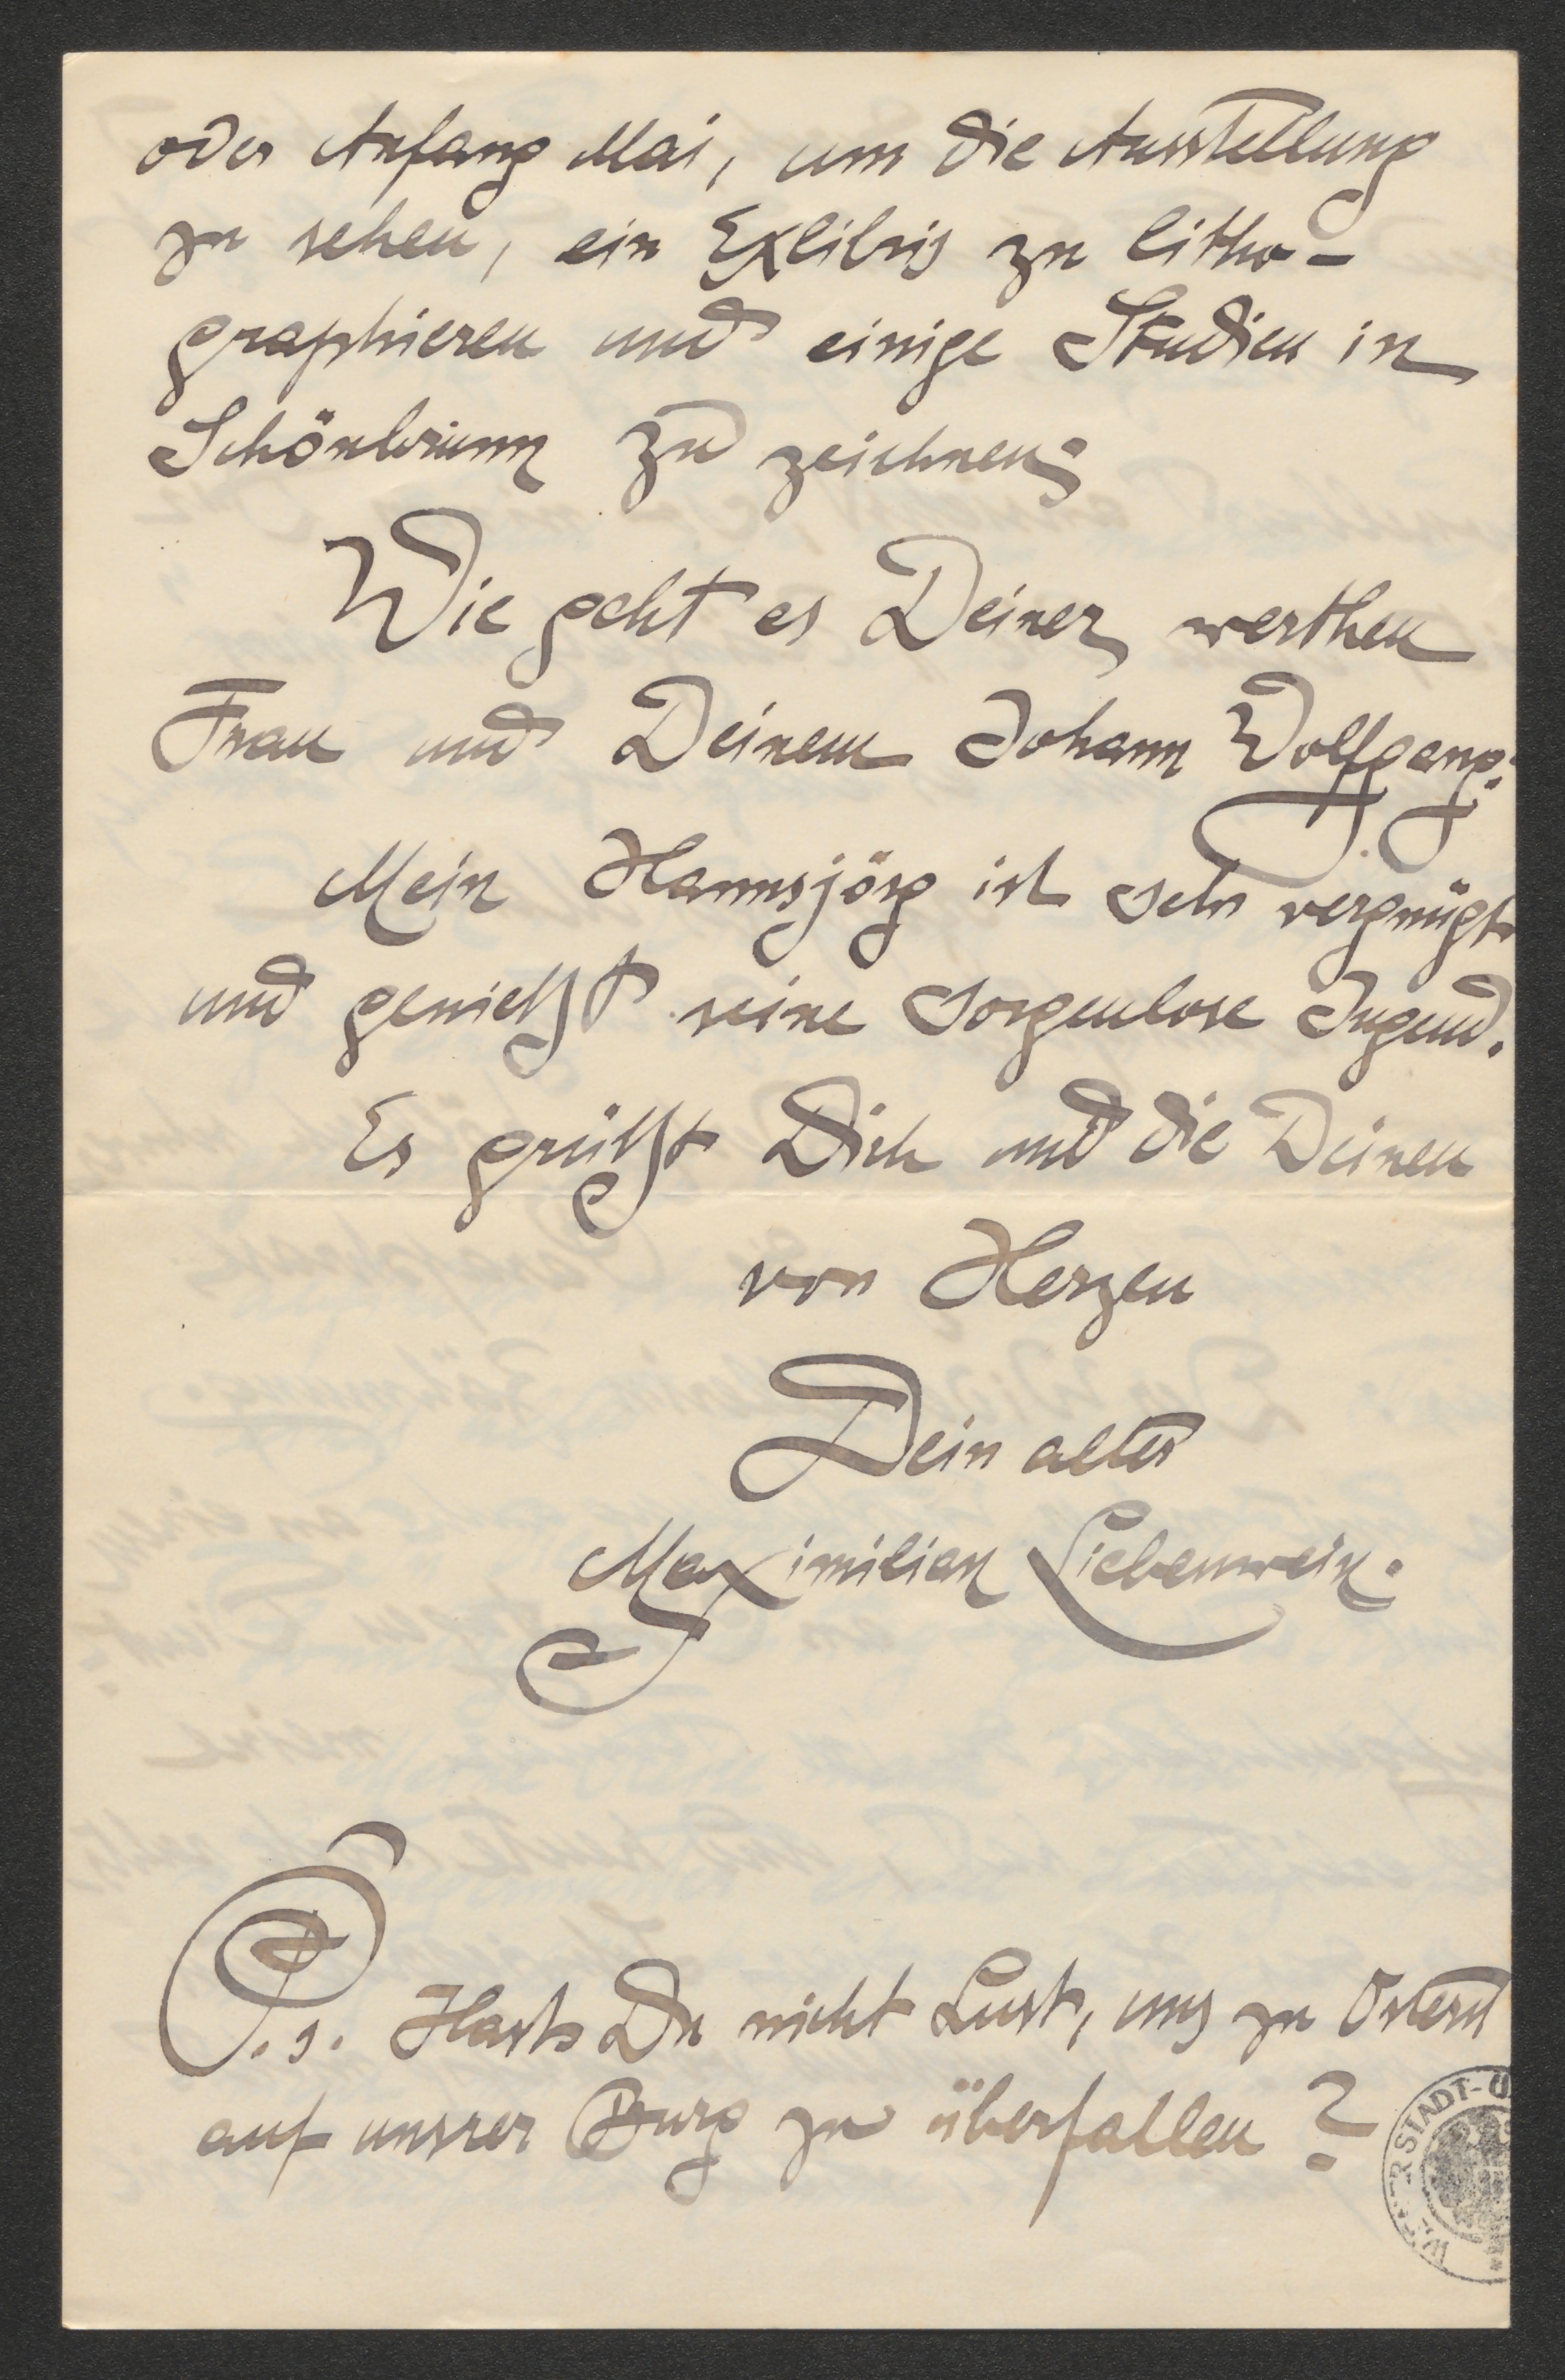 oder Anfang Mai, um die Ausstellung
zu sehen, ein Exlibris zu litho-
graphieren und einige Studien in
Schönbrunn zu zeichnen;
Wie geht es Deiner werthen
Frau und Deinem Johann Wolfgang?
Mein Hannsjörg ist sehr vergnügt
und genießt seine sorgenlose Jugend.
Es grüßt Dich und die Deinen
von Herzen
Dein alter
Maximilian Liebenwein.
P.s. Hast Du nicht Lust, uns zu Ostern
auf unsrer Burg zu überfallen?
STADT-